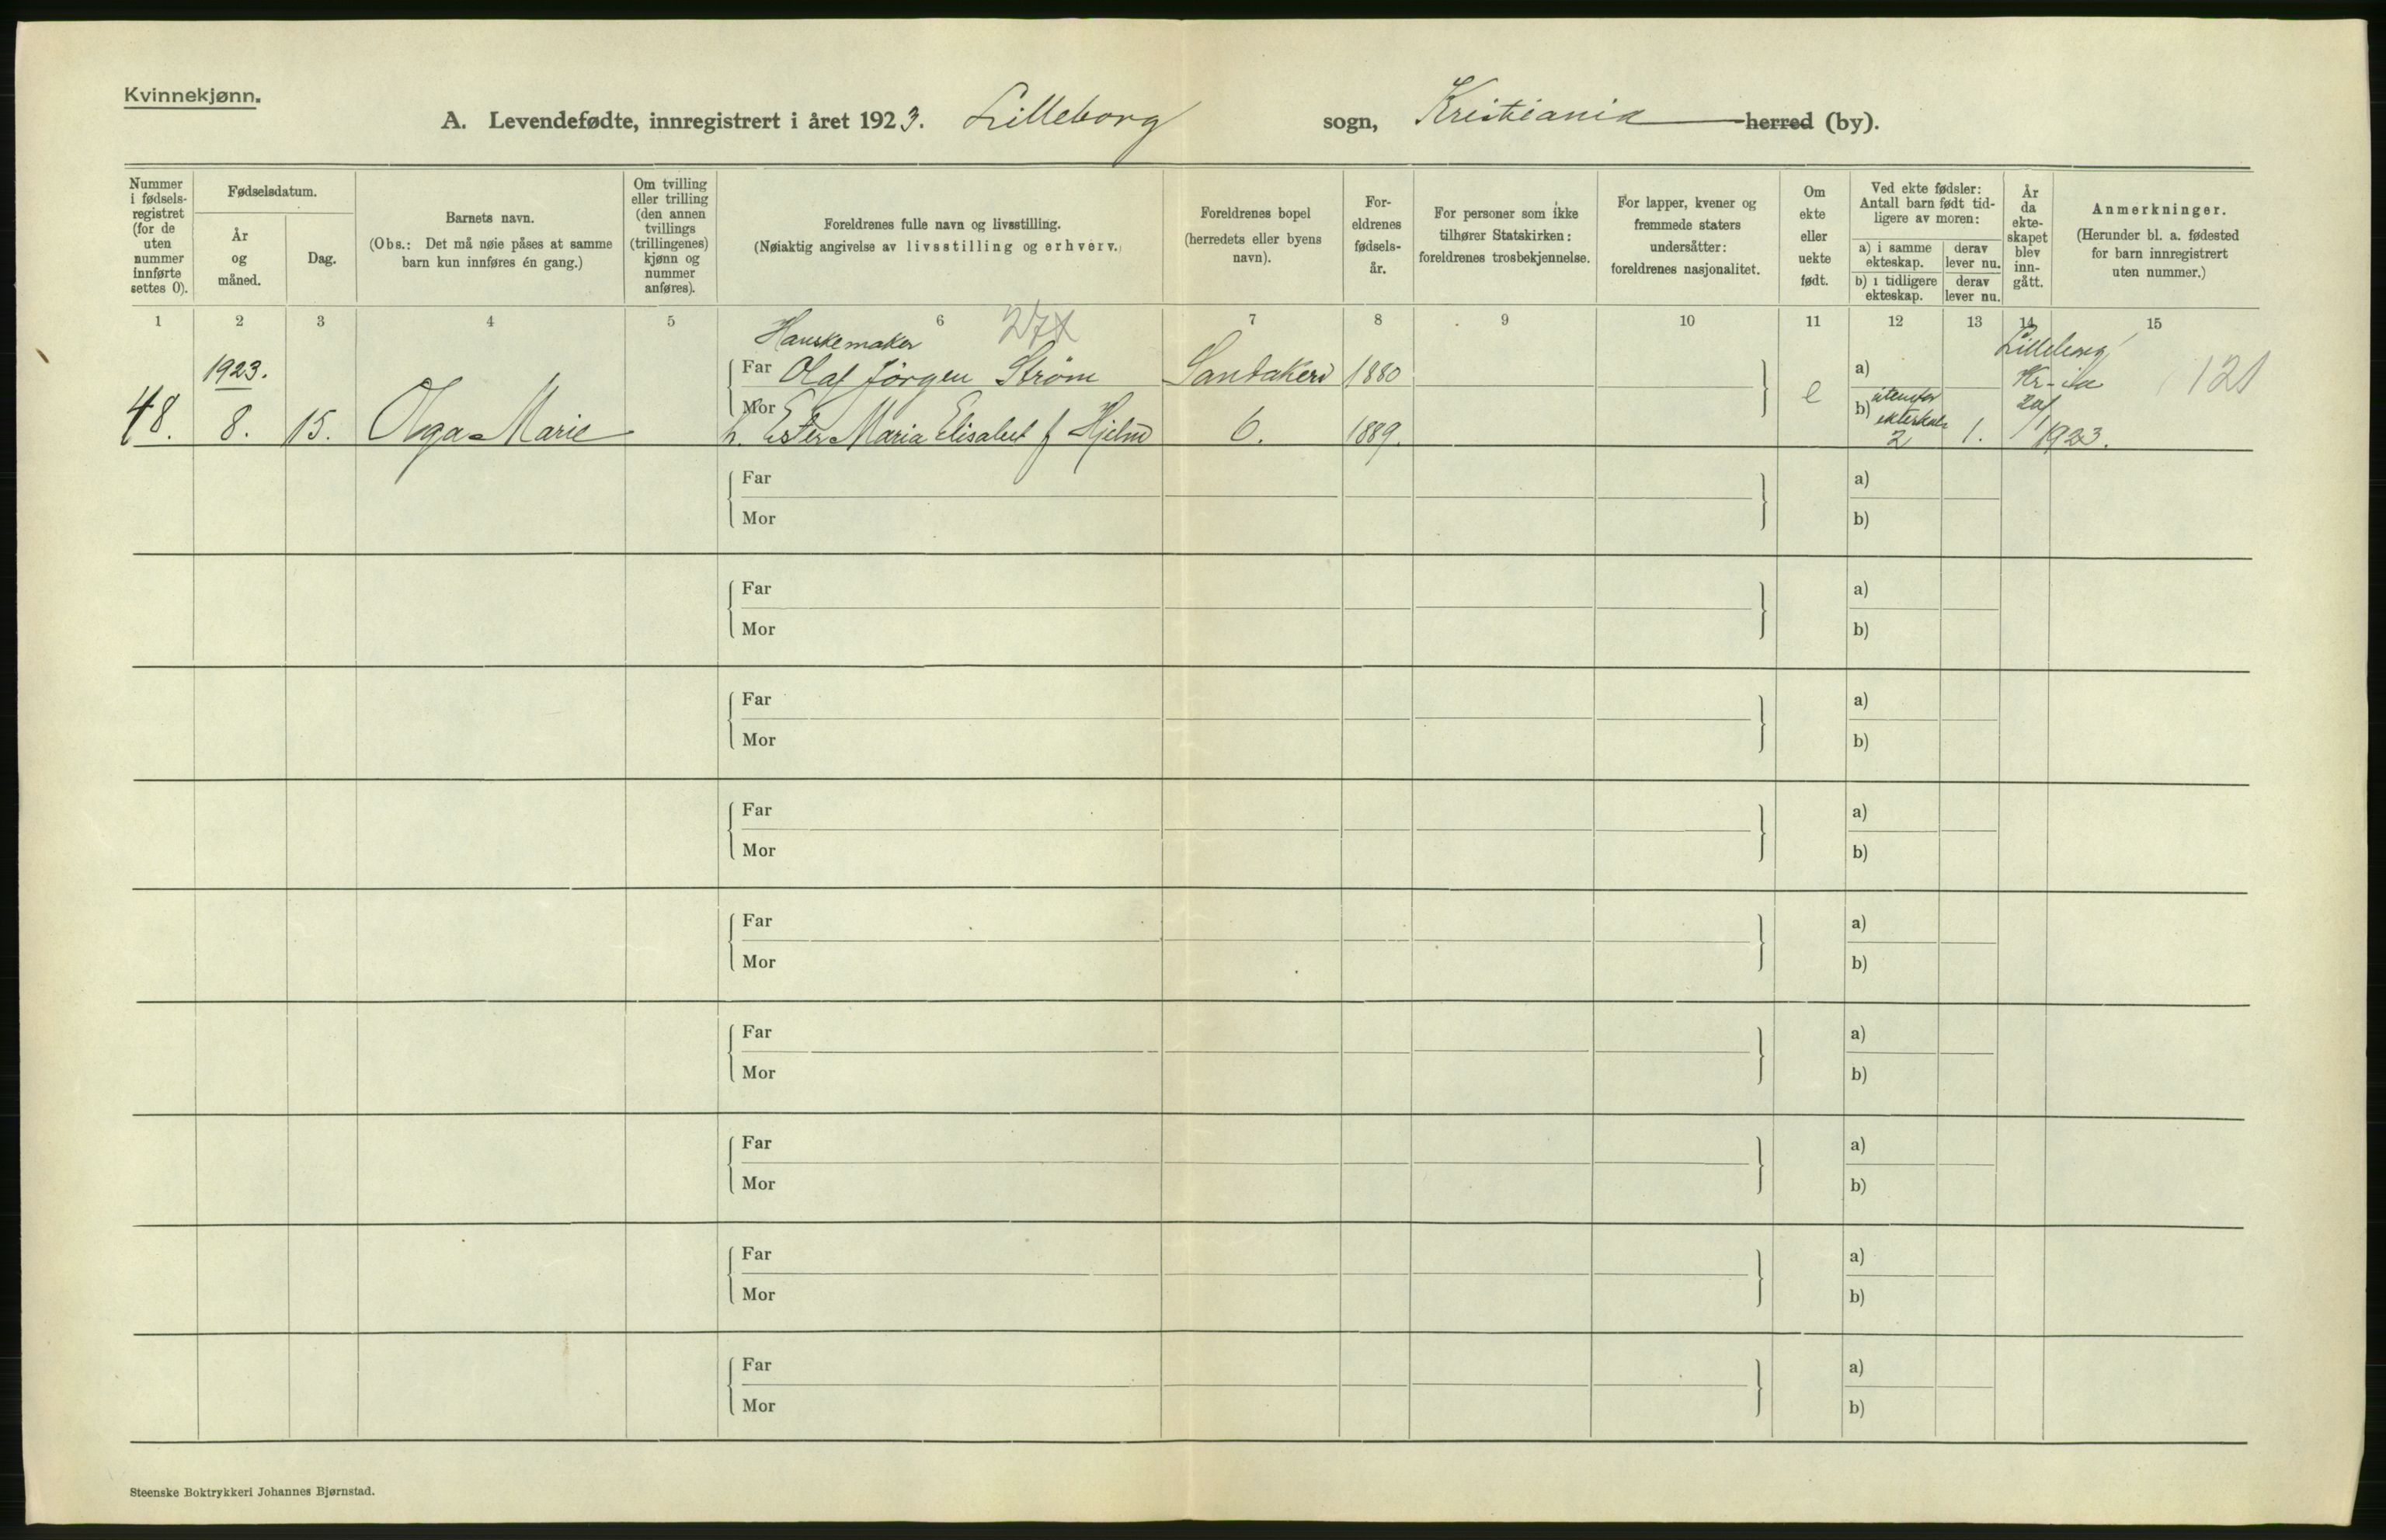 Kvinnekjønn.
A. Levendefødte, innregistrert i året 1923. Lilleborg sogn, Kristiania herred (by).
Nummer i fødselsregistret (for de uten nummer innførte settes 0).
Fødselsdatum.
År og måned.
Dag.
Barnets navn.
(Obs.: Det må nøie påses at samme barn kun innføres én gang.)
Om tvilling eller trilling (den annen tvillings (trillingenes) kjønn og nummer anføres).
Foreldrenes fulle navn og livsstilling.
(Nøiaktig angivelse av livsstilling og erhverv.)
Foreldrenes bopel (herredets eller byens navn).
Foreldrenes fødselsår.
For personer som ikke tilhører Statskirken: foreldrenes trosbekjennelse.
For lapper, kvener og fremmede staters undersåtter: foreldrenes nasjonalitet.
Om ekte eller uekte født.
Ved ekte fødsler: Antall barn født tidligere av moren:
a) i samme ekteskap.
derav lever nu.
b) i tidligere ekteskap.
derav lever nu.
År da ekteskapet blev inngått.
Anmerkninger.
(Herunder bl. a. fødested for barn innregistrert uten nummer.)
1 2 3 4 5 6 7 8 9 10 11 12 13 14 15
Hanskemaker
1923. Far Olaf Jörgen Strøm 1880 a) Lilleborg Kr-ia 121
48. 8. 15. Olga Marie Mor h. Ester Maria Elisabet f Hjelm 6. 1889. e b) utenfor ekteskab 2 1. 1923.
Far a)
Mor b)
Far a)
Mor b)
Far a)
Mor b)
Far a)
Mor b)
Far a)
Mor b)
Far a)
Mor b)
Far a)
Mor b)
Far a)
Mor b)
Far a)
Mor b)
Steenske Boktrykkeri Johannes Bjørnstad.